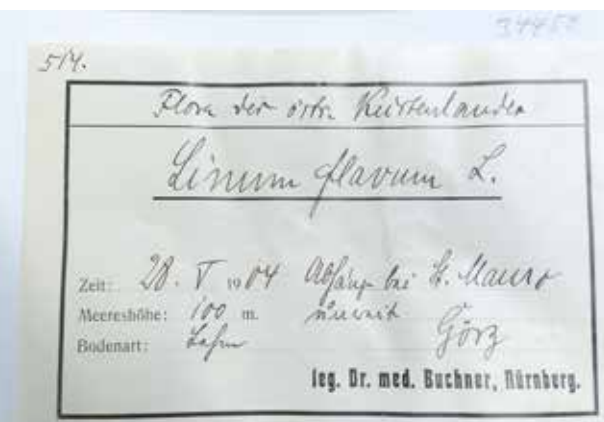 34453
514.
Flora der östr. Küstenlandes
Linum flavum L.
Zeit: 28. V. 1904 Abhänge bei St. Mauro
Meereshöhe: 100 m. unweit
Bodenart: Lehm Görz
leg. Dr. med. Buchner, Nürnberg.